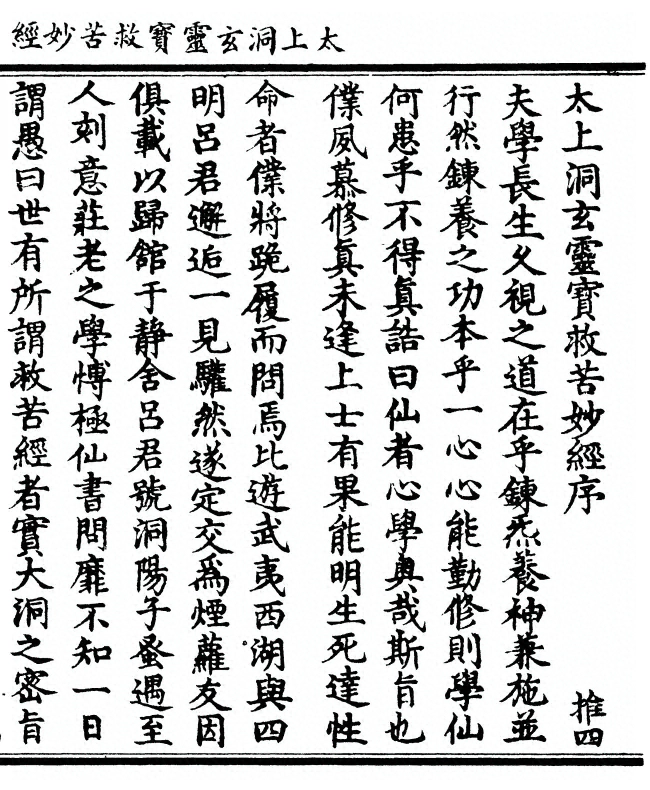 太上洞玄靈寳救苦妙經
太上洞玄靈寳救苦妙經序　推四
夫學長生久視之道在乎錬炁養神兼施並
行然錬養之功本乎一心心能勤修則學仙
何患乎不得眞誥曰仙者心學奥哉斯旨也
僕夙慕修眞未逢上士有果能明生死達性
命者僕將跪履而問焉比遊武夷西湖與四
明呂君邂逅一見驩然遂定交爲煙蘿友因
俱載以歸館于靜舍呂君號洞陽子蚤遇至
人刻意莊老之學愽極仙書問靡不知一日
謂愚曰世有所謂救苦經者實大洞之密旨